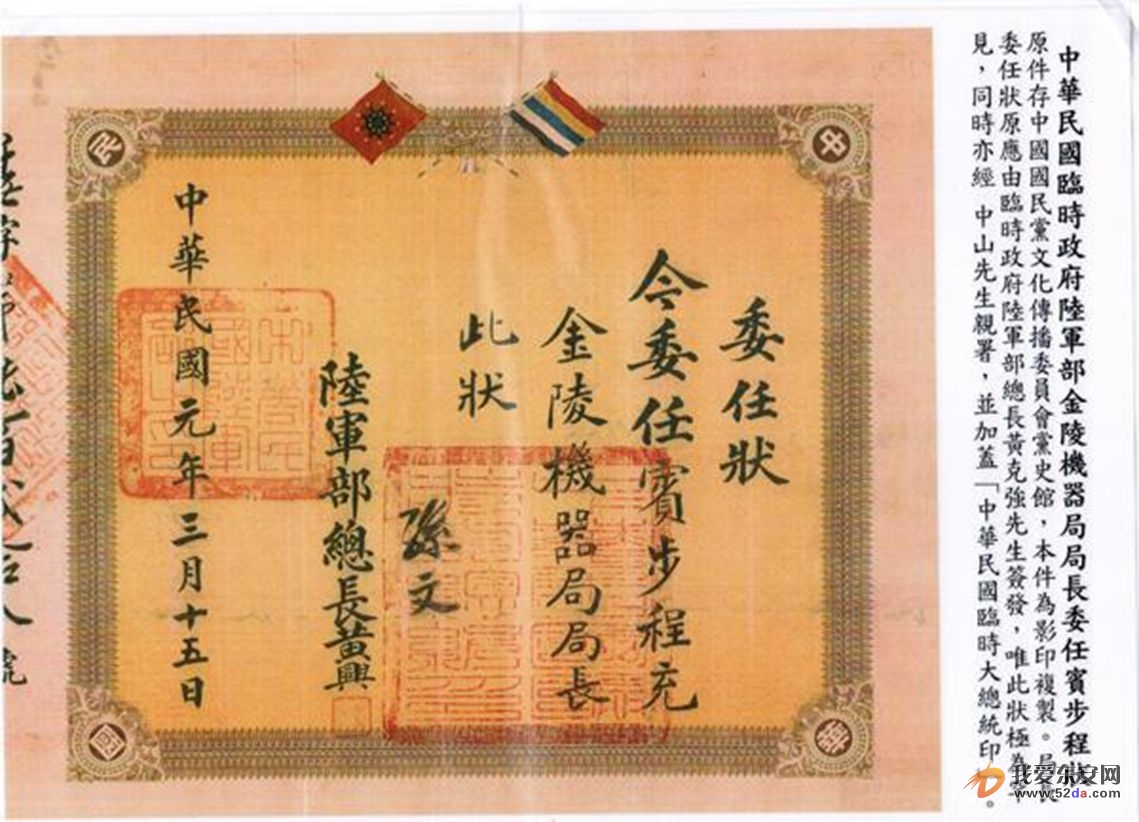 中華民國臨時政府陸軍部金陵機器局局長委任賓步程狀
原件存中國國民黨文化傳播委員會黨史館，本件為影印複製。局長
委任狀原應由臨時政府陸軍部總長黃克強先生簽發，唯此狀極為罕
見，同時亦經 中山先生親署，並加蓋「中華民國臨時大總統印」。
中
華
民
國
委任狀
令委任賓步程充
金陵機器局局長
此狀
孫文
陸軍部總長黃興
中華民國元年三月十五日
號
我爱东安网
www.52da.com